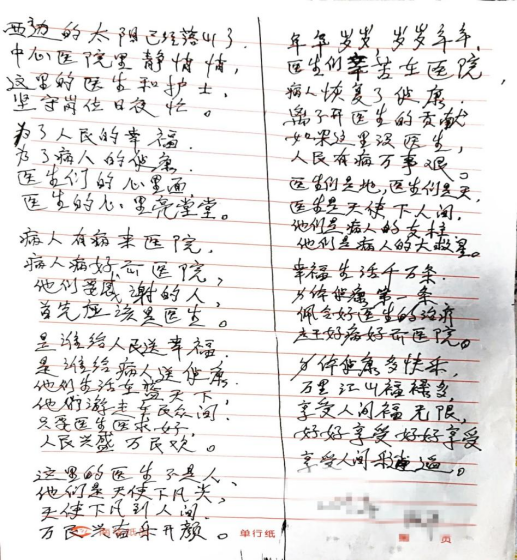 西边的太阳已经落山了
中心医院里静悄悄，
这里的医生和护士，
坚守岗位日夜忙。
为了人民的幸福
为了病人的健康
医生们的心里面
医生的心里亮堂堂。
病人有病来医院，
病人病好而医院，
他们要感谢的人，
首先应该是医生。
是谁给人民送幸福
是谁给病人送健康
他们生活在蓝天下，
他们游走在民众间
只要医生医术好，
人民兴盛万民欢。
这里的医生不是人，
他们是天使下凡尘，
天使下凡到人间，
万民兴奋乐开颜。
年年岁岁，岁岁年年，
医生们辛苦在医院，
病人恢复了健康
离不开医生的贡献
如果这里没医生，
人民有病万事艰。
医生们是地，医生们是天，
医生是天使下人间，
他们是病人的支柱
他们是病人的大救星。
幸福生活千万条
身体健康第一条
佩合好医生的治疗
病好而医院。
身体健康多快乐，
万里江山福禄多，
享受人间福无限，
好好享受好好享受
享受人间乐逍遥。
单行纸
第 页